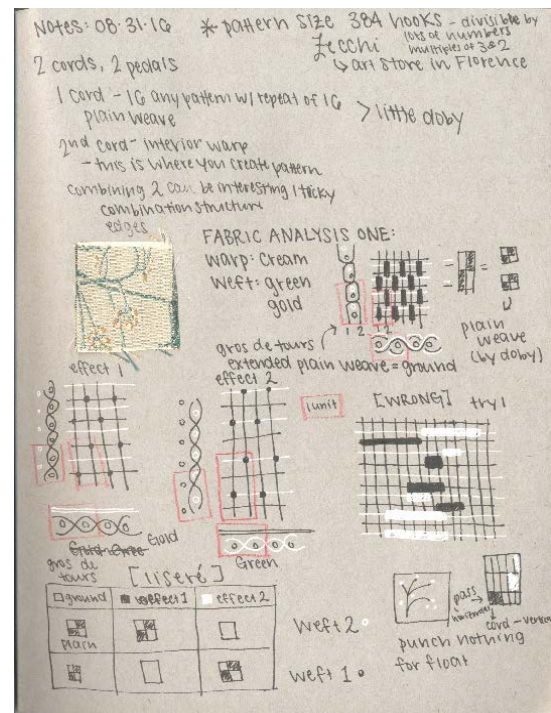 Notes: 08·31·16 * pattern size 384 hooks - divisible by
lots of numbers
multiples of 3 & 2
Zecchi
↳ art store in Florence
2 cords, 2 pedals
1 cord - 16 any pattern w/ repeat of 16
plain weave > little doby
2nd cord - interior warp
- this is where you create pattern
combining 2 can be interesting / tricky
combination structure
edges
FABRIC ANALYSIS ONE:
warp: cream
weft: green
gold
1 2 1 2
plain
weave
(by doby)
gros de tours
extended plain weave = ground
effect 1
effect 2
1 unit
[WRONG] try 1
Gold
Green
gros de
tours
[liseré]
ground effect 1 effect 2
plain
weft 2
weft 1
pass
horizontal
cord - vertical
punch nothing
for float